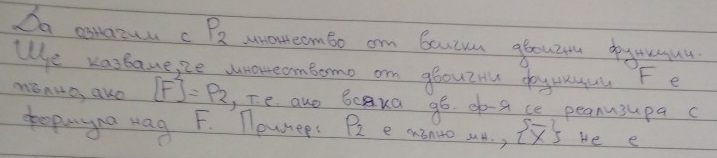 Да означим с P₂ множество от всички двоични функции.
Ще казваме, че множеството от двоични функции F е
пълно, ако [F]=P₂, т.е. ако всяка дв. ф-я се реализира с
формула над F. Пример: P₂ е пълно мн., {x̄} не е